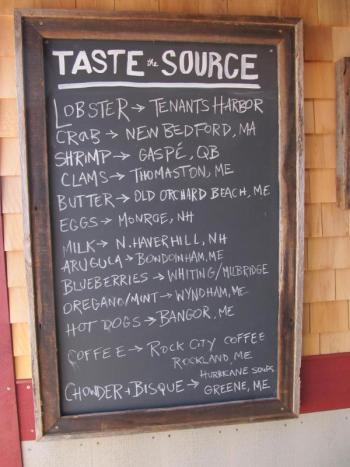 TASTE the SOURCE
LOBSTER → TENANTS HARBOR
CRAB → NEW BEDFORD, MA
SHRIMP → GASPÉ, QB
CLAMS → THOMASTON, ME
BUTTER → OLD ORCHARD BEACH, ME
EGGS → MONROE, NH
MILK → N. HAVERHILL, NH
ARUGULA → BOWDOINHAM, ME
BLUEBERRIES → WHITING/MILBRIDGE
OREGANO/MINT → WYNDHAM, ME
HOT DOGS → BANGOR, ME
COFFEE → ROCK CITY COFFEE
ROCKLAND, ME
CHOWDER + BISQUE → HURRICANE SOUPS
GREENE, ME